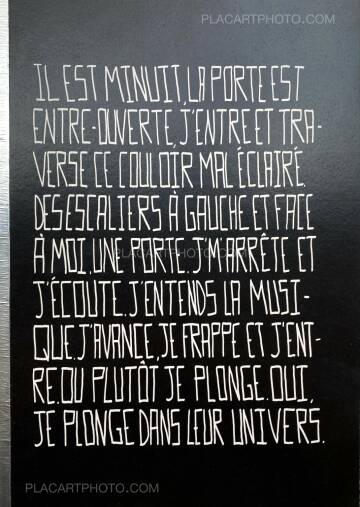 PLACARTPHOTO.COM
IL EST MINUIT, LA PORTE EST
ENTRE-OUVERTE, J'ENTRE ET TRA-
VERSE CE COULOIR MAL ÉCLAIRÉ.
DES ESCALIERS À GAUCHE ET FACE
À MOI, UNE PORTE. J'M'ARRÊTE ET
PLACARTPHOTO.COM
J'ÉCOUTE. J'ENTENDS LA MUSI-
QUE, J'AVANCE, JE FRAPPE ET J'ENT-
RE. OU PLUTÔT JE PLONGE. OUI,
JE PLONGE DANS LEUR UNIVERS.
PLACARTPHOTO.COM